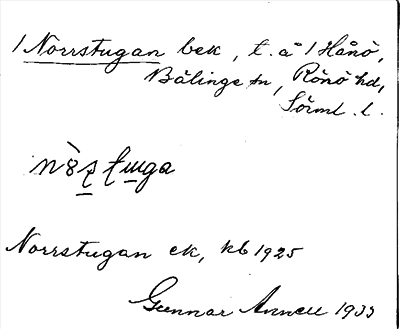 1 Norrstugan bek, t. å 1 Hånö,
Bälinge sn, Rönö hd,
Sörml. l.
Norrstugan ek, kb 1925
Gunnar Annell 1933